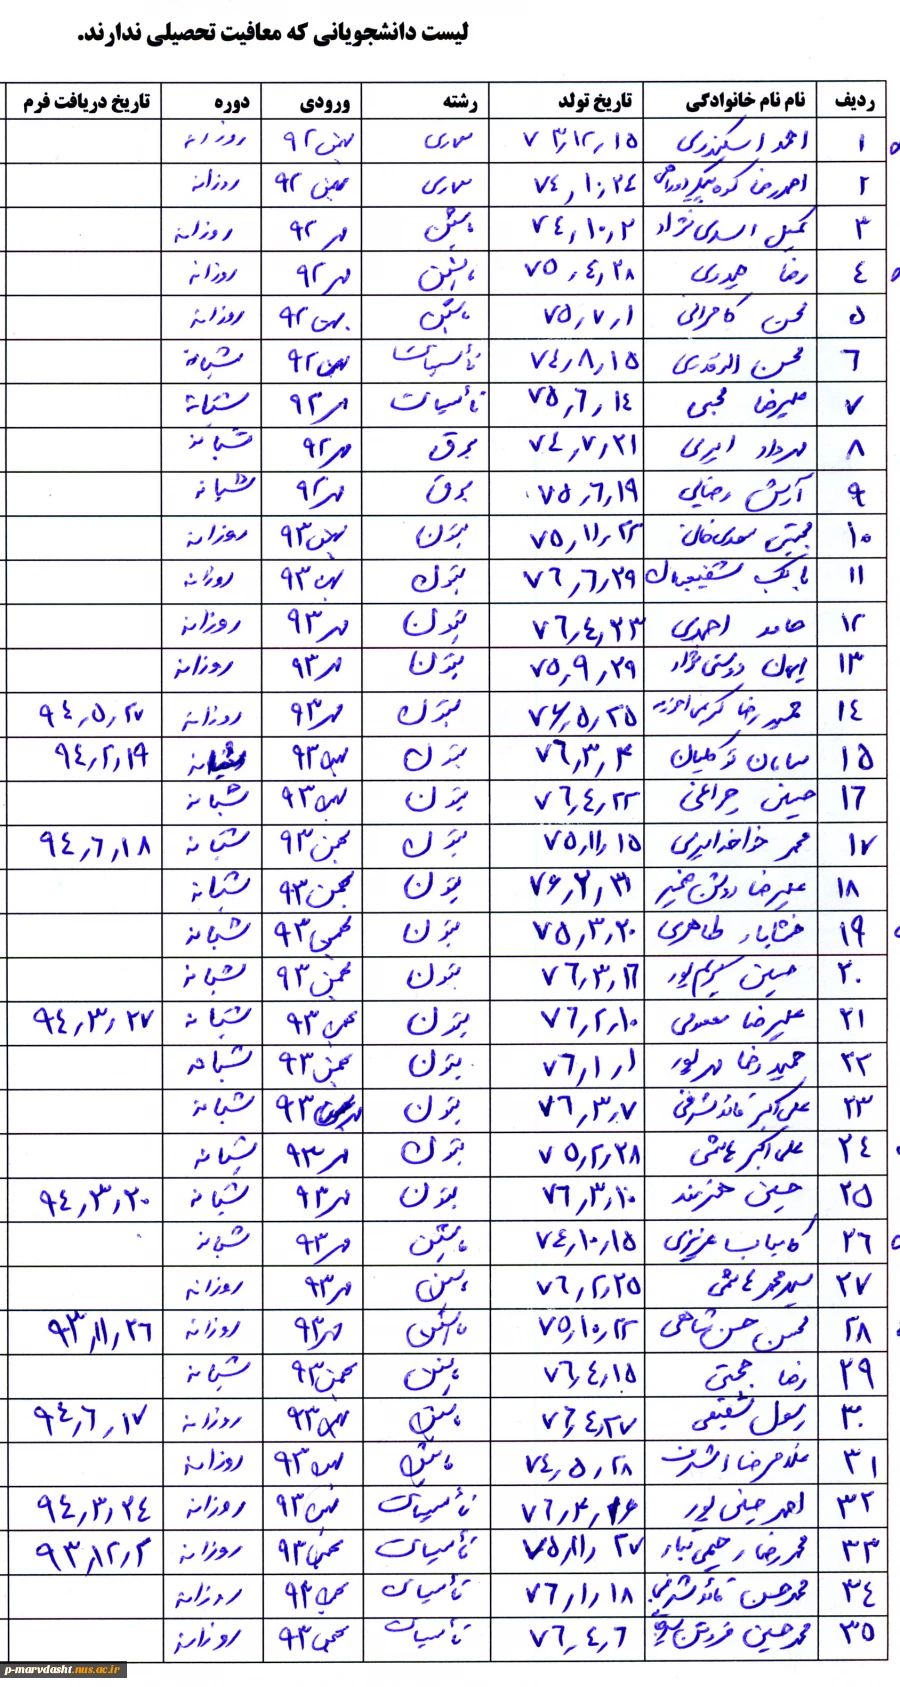 لیست دانشجویانی که معافیت تحصیلی ندارند.
ردیف نام نام خانوادگی تاریخ تولد رشته ورودی دوره تاریخ دریافت فرم
۱ احمد اسکندری ۷۳٫۱۲٫۱۵ معماری بهمن ۹۲ روزانه
۲ احمدرضا ۷٤٫۱۰٫۲٤ معماری بهمن ۹۲ روزانه
۳ کمیل اسدی نژاد ۷٤٫۱۰٫۲ ماشین مهر ۹۲ روزانه
٤ رضا حیدری ۷۵٫٤٫۲۸ ماشین مهر ۹۲ روزانه
۵ محسن کامرانی ۷۵٫۷٫۱ ماشین بهمن ۹۲ روزانه
٦ محسن ۷٤٫۸٫۱۵ تأسیسات بهمن ۹۲ شبانه
۷ علیرضا محبی ۷۵٫٦٫۱٤ تأسیسات مهر ۹۲ شبانه
۸ مهرداد امیری ۷٤٫۷٫۲۱ برق مهر ۹۲ شبانه
۹ آرش رضایی ۷۵٫٦٫۱۹ برق مهر ۹۲ شبانه
۱۰ مجتبی ۷۵٫۱۱٫۲۲ بتون بهمن ۹۳ روزانه
۱۱ بابک ۷٦٫٦٫۲۹ بتون بهمن ۹۳ روزانه
۱۲ حامد احمدی ۷٦٫٤٫۲۳ بتون مهر ۹۳ روزانه
۱۳ ایمان دوستی نژاد ۷۵٫۹٫۲۹ بتون مهر ۹۳ روزانه
۱٤ حمیدرضا ۷۶٫۵٫۲۵ بتون مهر ۹۳ روزانه ۹٤٫۵٫۲۷
۱۵ سامان توکلیان ۷٦٫۳٫۴ بتون بهمن ۹۳ شبانه ۹٤٫۲٫۱۹
۱٦ حسین چراغی ۷٦٫٤٫۲۲ بتون بهمن ۹۳ شبانه
۱۷ محمد خواجه امیری ۷۵٫۱۱٫۱۵ بتون بهمن ۹۳ شبانه ۹٤٫٦٫۱۸
۱۸ علیرضا روشن ضمیر ۷۶٫۲٫۳۱ بتون بهمن ۹۳ شبانه
۱۹ خشایار طاهری ۷۵٫۳٫۲۰ بتون بهمن ۹۳ شبانه
۲۰ حسین کریم پور ۷٦٫۳٫۱٦ بتون بهمن ۹۳ شبانه
۲۱ علیرضا معصومی ۷٦٫۲٫۱۰ بتون بهمن ۹۳ شبانه ۹٤٫۳٫۲۷
۲۲ حمیدرضا مهرپور ۷٦٫۱٫۱ بتون بهمن ۹۳ شبانه
۲۳ علی اکبر قائد شرفی ۷٦٫۳٫۷ بتون ۹۳ شبانه
۲٤ علی اکبر هاشمی ۷۵٫۲٫۲۸ بتون مهر ۹۳ شبانه
۲۵ حسین هنرمند ۷٦٫۳٫۱۰ بتون مهر ۹۳ شبانه ۹٤٫۳٫۲۰
۲٦ کامیاب عزیزی ۷٤٫۱۰٫۱۵ ماشین مهر ۹۳ شبانه
۲۷ سید محمد هاشمی ۷٦٫۲٫۲۵ ماشین مهر ۹۳ روزانه
۲۸ محسن حسن شاهی ۷۵٫۱۰٫۲۲ ماشین مهر ۹۳ روزانه ۹۳٫۱۱٫۲٦
۲۹ رضا حجتی ۷٦٫٤٫۱۵ ماشین بهمن ۹۳ شبانه
۳۰ رسول شفیعی ۷٦٫٤٫۲۷ ماشین بهمن ۹۳ روزانه ۹٤٫٦٫۱۷
۳۱ غلامرضا اشرف ۷٤٫۵٫۲۸ ماشین بهمن ۹۳ روزانه
۳۲ احمد حسینی پور ۷٦٫۳٫۱۶ تأسیسات بهمن ۹۳ روزانه ۹٤٫۳٫۲٤
۳۳ محمدرضا رحیمی تبار ۷۵٫۱۱٫۲۷ تأسیسات بهمن ۹۳ روزانه ۹۳٫۱۲٫۲
۳٤ محمدحسن قائد شرفی ۷٦٫۱٫۱۸ تأسیسات بهمن ۹۳ روزانه
۳۵ محمدحسین ۷٦٫٤٫٦ تأسیسات بهمن ۹۳ روزانه
p-marvdasht.nus.ac.ir